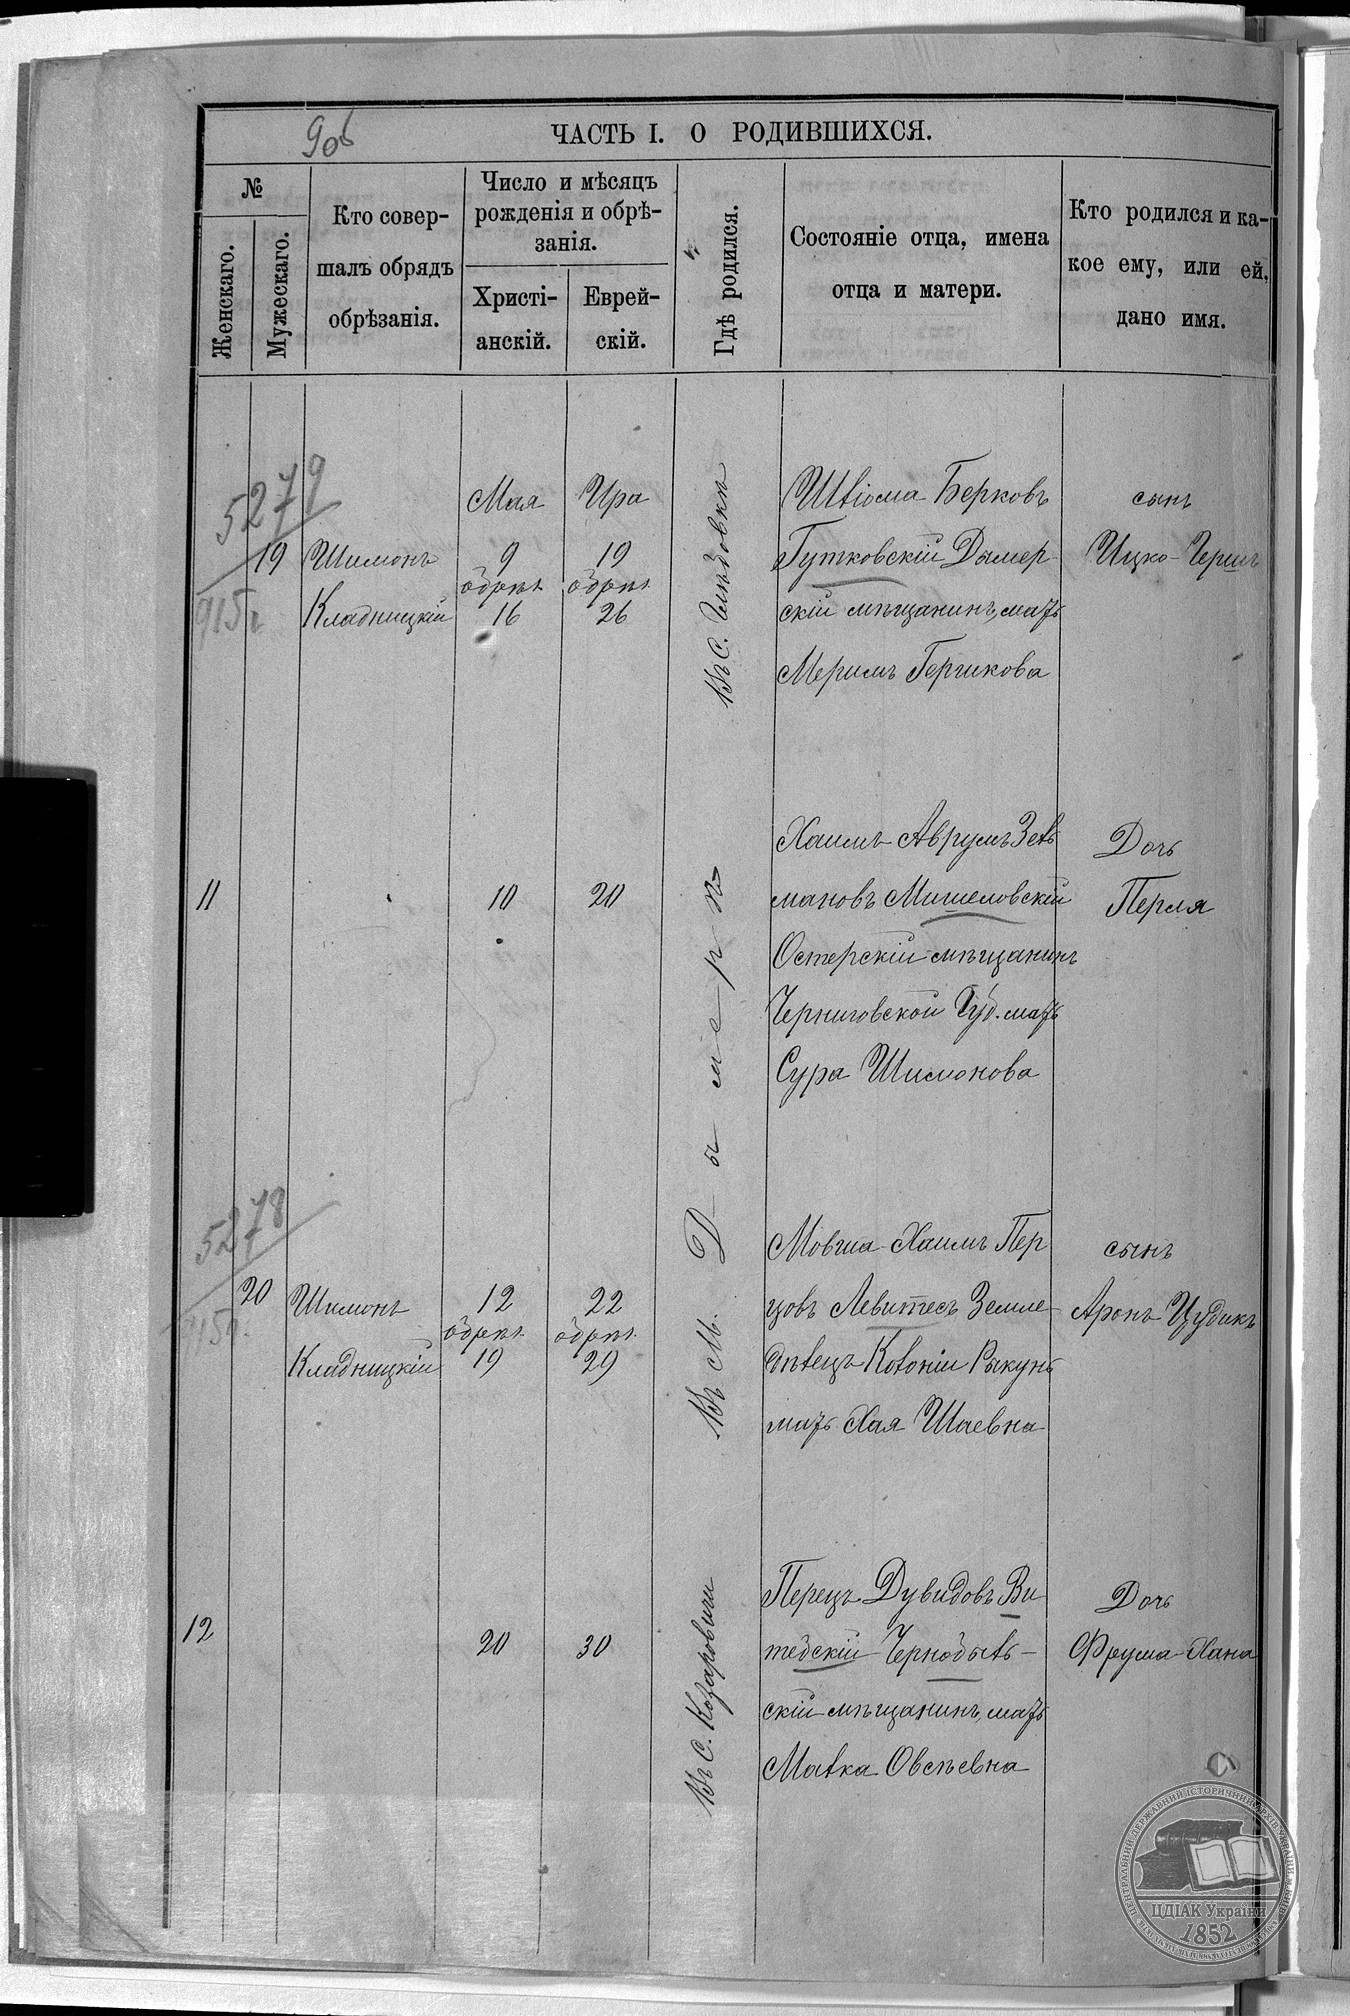 90б
ЧАСТЬ I. О РОДИВШИХСЯ.
№
Женскаго.
Мужескаго.
Кто совер-
шалъ обрядъ
обрѣзанія.
Число и мѣсяцъ
рожденія и обрѣ-
занія.
Христі-
анскій.
Еврей-
скій.
Гдѣ родился.
Состояніе отца, имена
отца и матери.
Кто родился и ка-
кое ему, или ей,
дано имя.
5279
915г
19
Шимонъ
Кладницкій
Мая
9
обрѣз.
16
Ира
19
обрѣз.
26
Въ с.
Шліома Берковъ
Гутковскій Дымер-
скій мѣщанинъ, мать
Меримъ Гершкова
сынъ
Ицко-Гершъ
11
10
20
Въ м. Дымерѣ
Хаимъ-Аврумъ Зель
мановъ Мишеловскій
Остерскій мѣщанинъ
Черниговской Губ. мать
Сура Шимонова
Дочь
Перля
5278
20
Шимонъ
Кладницкій
12
обрѣз.
19
22
обрѣз.
29
Мовша-Хаимъ Пер
цовъ Левитесъ Земле-
дѣлецъ Колоніи Рыкунь
мать Хая Шаевна
сынъ
Аронъ Цудикъ
12
20
30
Въ с. Козаровичи
Перецъ Дувидовъ Ви
тебскій Чернобыль-
скій мѣщанинъ, мать
Малка Овсѣевна
Дочь
Фрума-Хана
ЦЕНТРАЛЬНИЙ ДЕРЖАВНИЙ ІСТОРИЧНИЙ АРХІВ УКРАЇНИ, М. КИЇВ
ЦДІАК України
1852